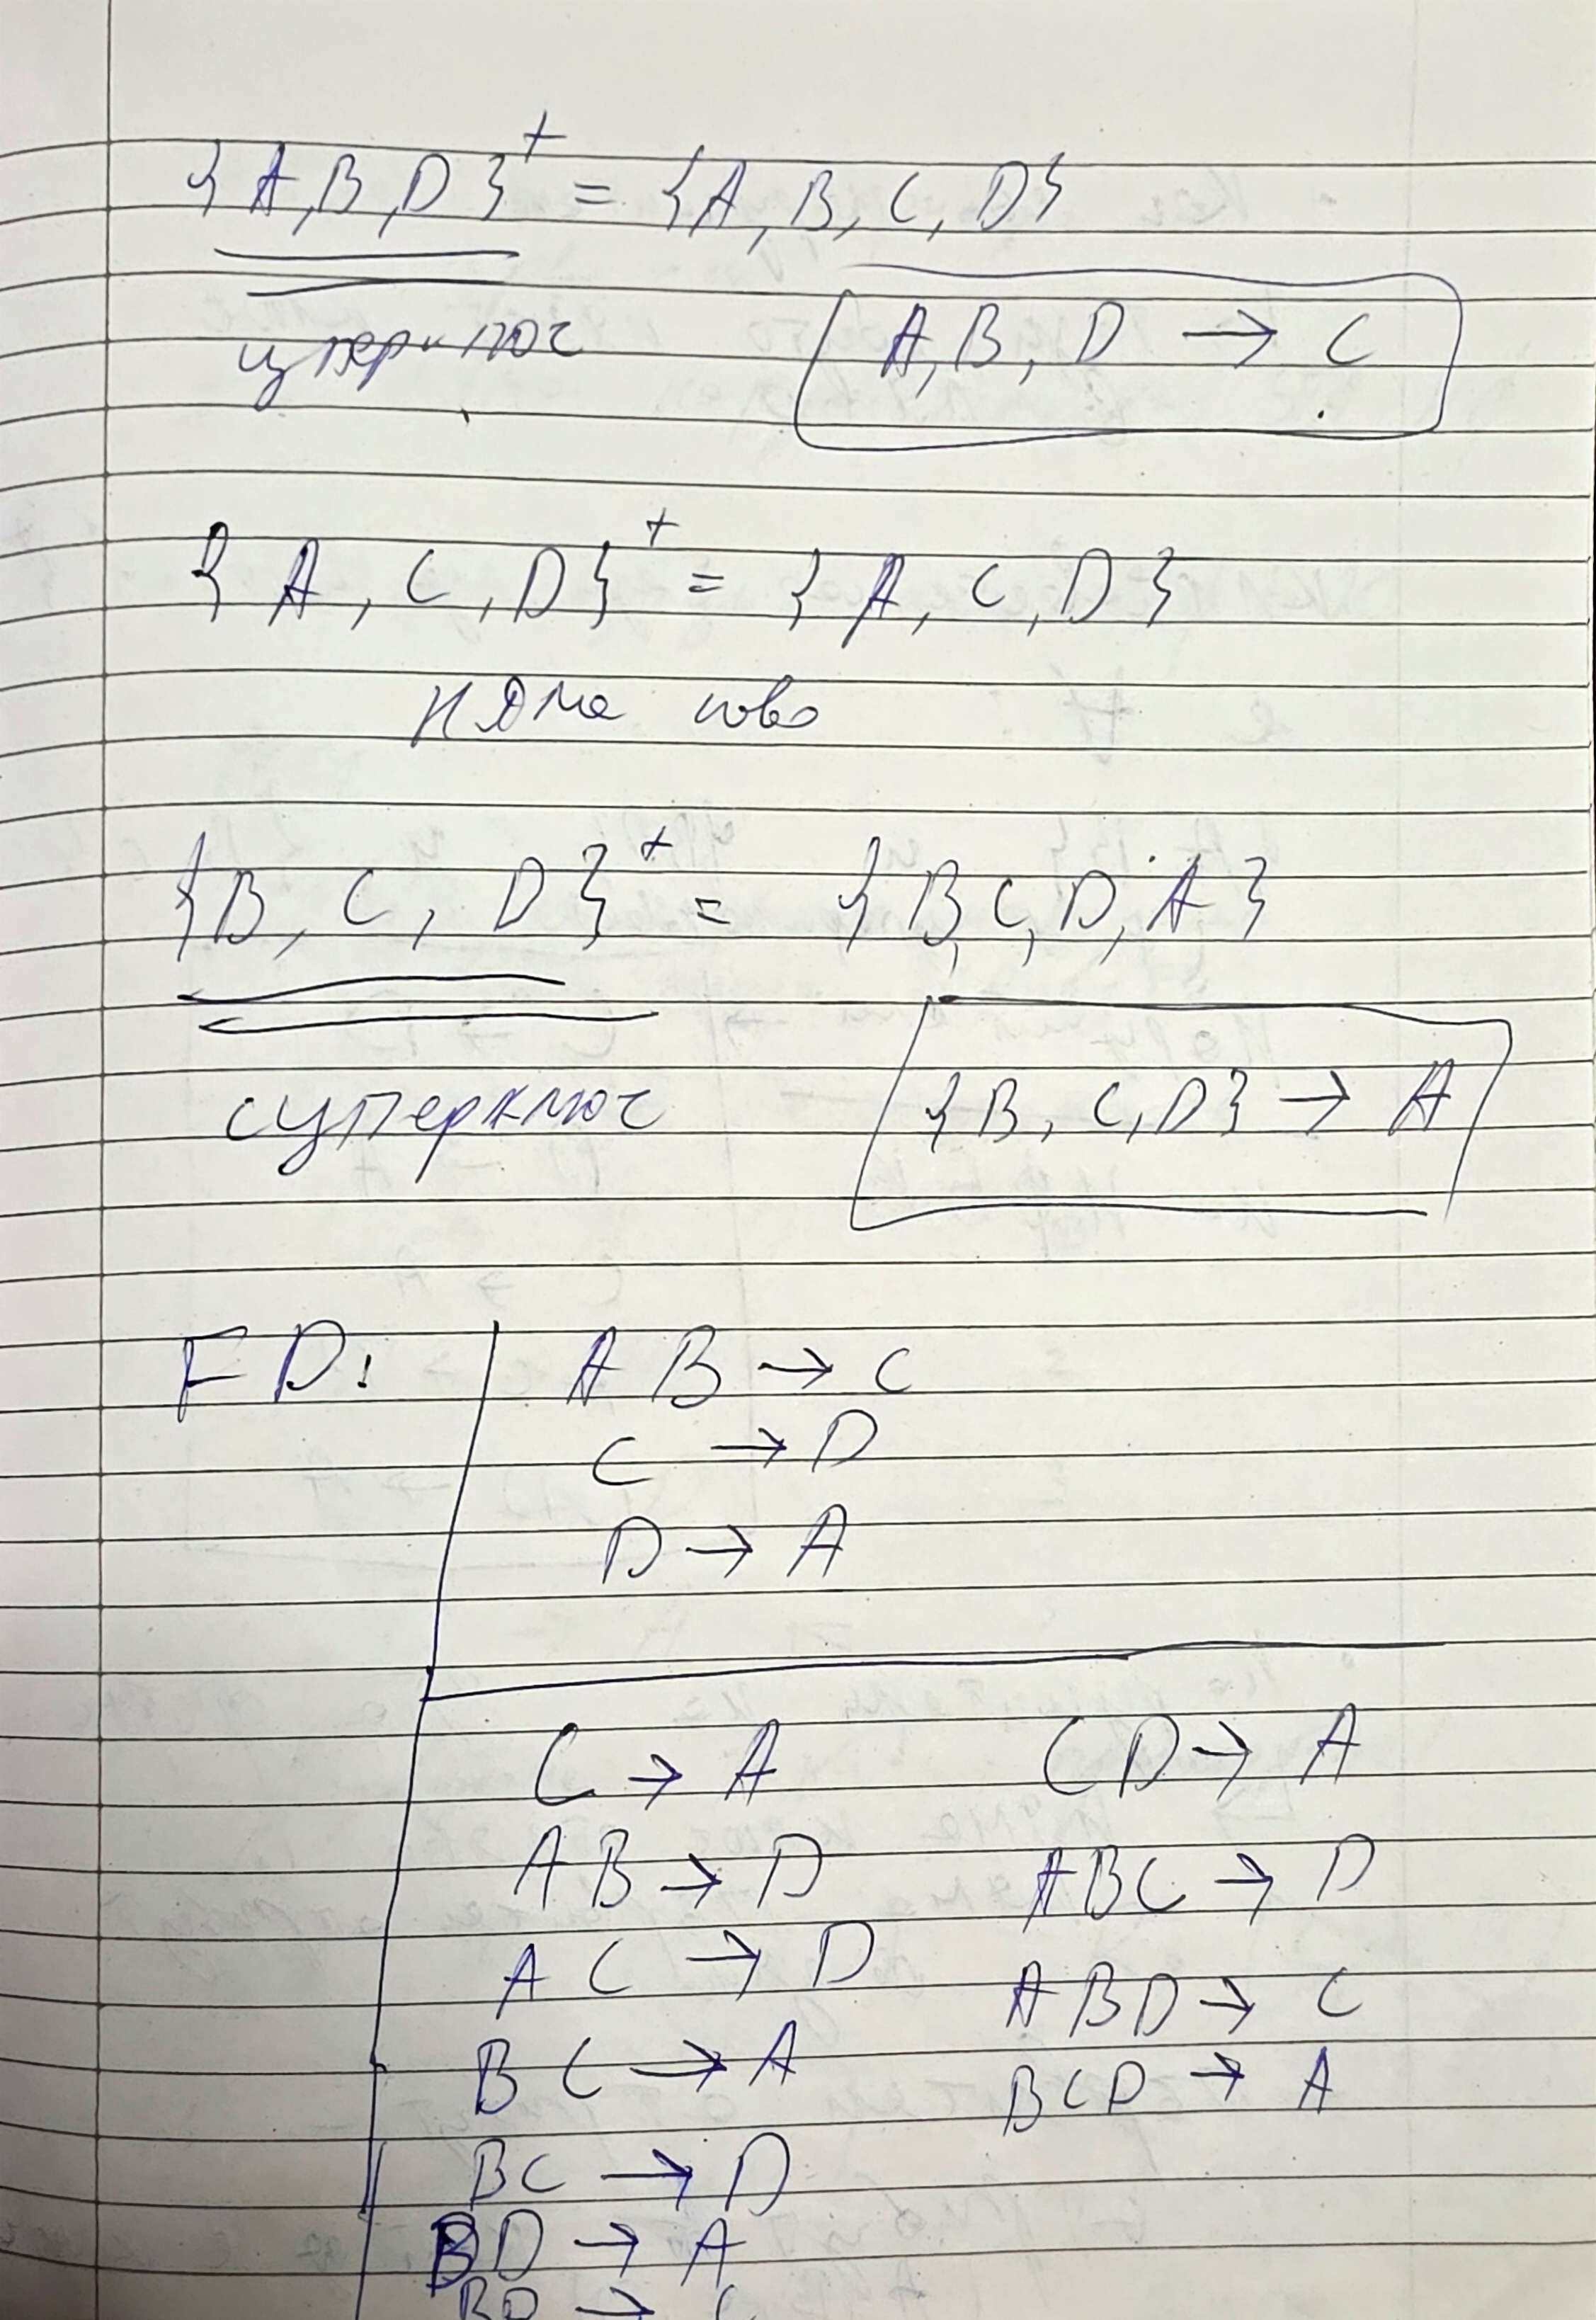 {A,B,D}⁺ = {A,B,C,D}
суперключ
A,B,D → C
{A,C,D}⁺ = {A,C,D}
няма ново
{B,C,D}⁺ = {B,C,D,A}
суперключ
{B,C,D} → A
FD:
AB → C
C → D
D → A
C → A
CD → A
AB → D
ABC → D
AC → D
ABD → C
BC → A
BCD → A
BC → D
BD → A
BD → C